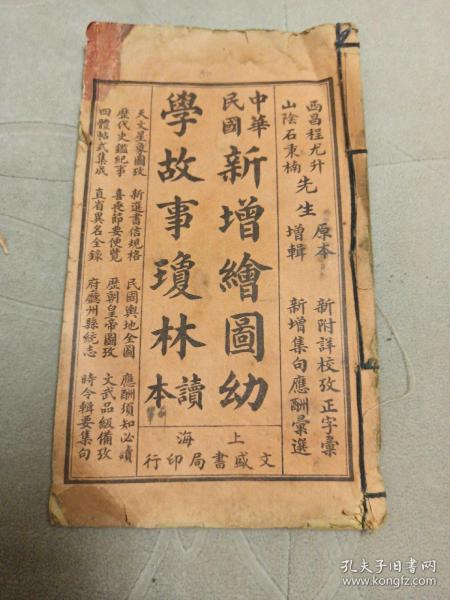 西昌程尤升
山陰石秉楠
先生
原本
增輯
新附詳校攷正字彙
新增集句應酬彙選
中華
民國
新增繪圖幼
學故事瓊林
讀本
天文星象圖攷
歷代史鑑紀事
四體帖式集成
新選書信規格
喜喪節要便覽
直省異名全錄
民國輿地全圖
歷朝皇帝圖攷
府廳州縣統志
應酬須知必讀
文武品級備攷
時令輯要集句
上海
文盛書局印行
孔夫子旧书网
www.kongfz.com